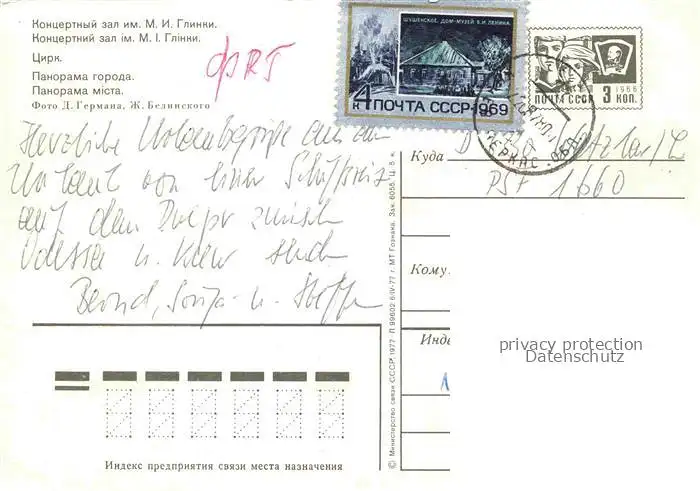 Концертный зал им. М. И. Глинки.
Концертний зал ім. М. І. Глінки.
Цирк.
Панорама города.
Панорама міста.
Фото Д. Германа, Ж. Белинского
ФРГ
ШУШЕНСКОЕ. ДОМ-МУЗЕЙ В.И. ЛЕНИНА.
4 К ПОЧТА СССР•1969
1966
ПОЧТА СССР 3 КОП.
ЧЕРКАС. ОБЛ.
Herzliche Urlaubsgrüße aus dem
Urlaub von einer Schiffsreise
auf dem Dnepr zwischen
Odessa u. Kiew senden
Bernd, Sonja u. Steffen
Куда D Wetzlar/L
PSF 1660
Кому
Инде
privacy protection
Datenschutz
Индекс предприятия связи места назначения
© Министерство связи СССР, 1977 Л 99602 6/IV-77 г. МТ Гознака. Зак. 6055. Ц. 5 к.